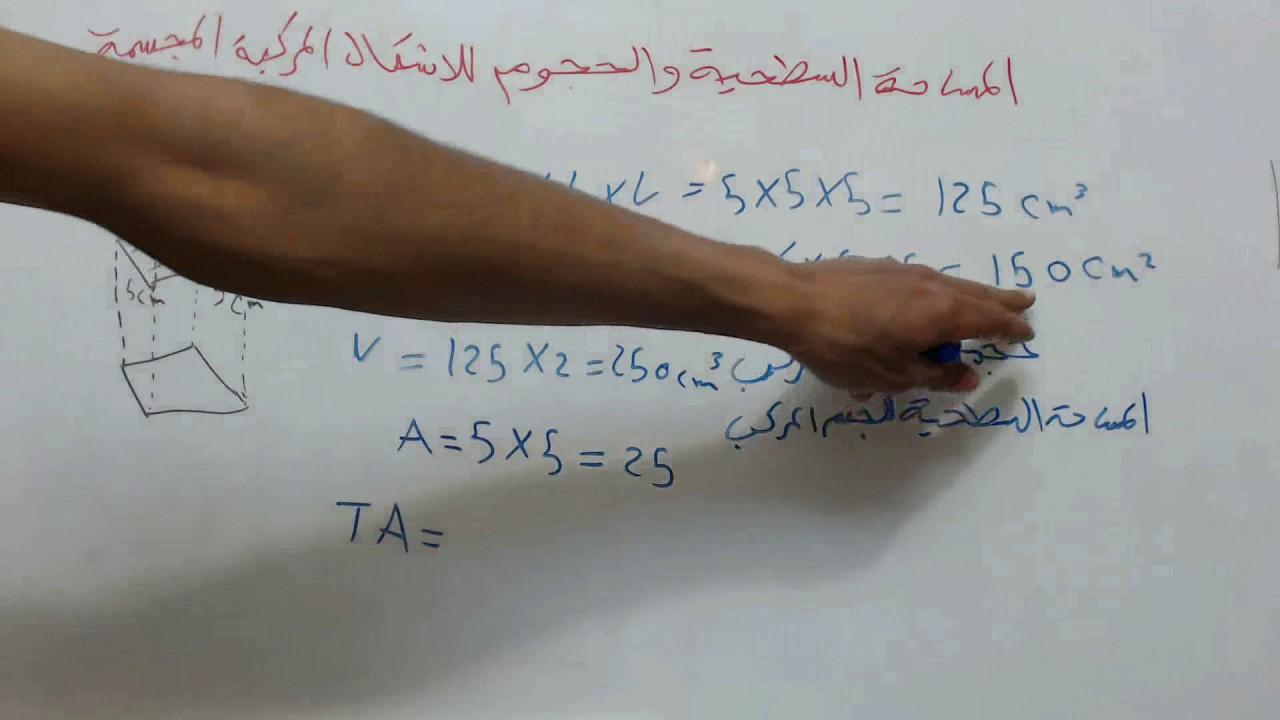 المساحة السطحية والحجوم للاشكال المركبة المجسمة
= 5X5X5 = 125 cm³
= 150 cm²
5cm
5cm
V = 125 X2 = 250 cm³
المساحة السطحية للجسم المركب
A = 5 X 5 = 25
TA =